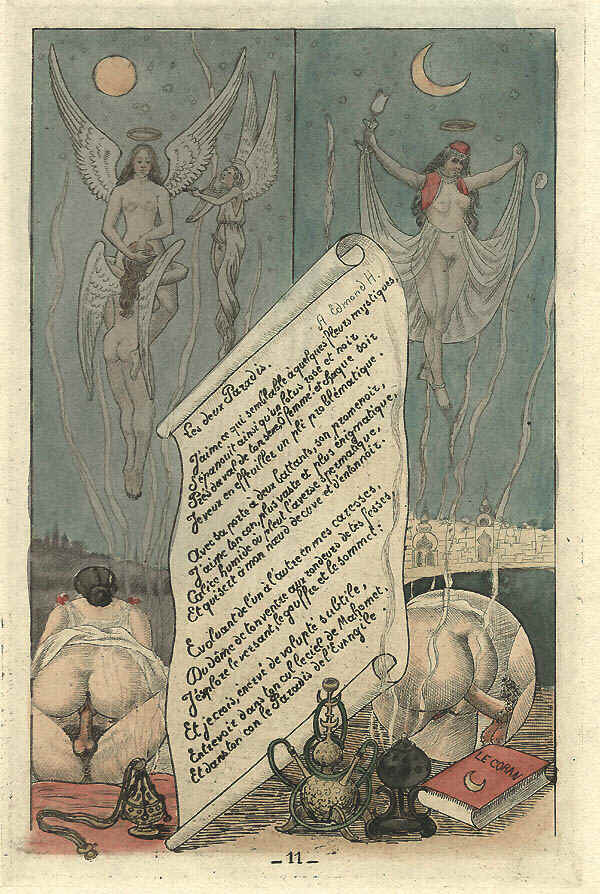 A Edmond H.
Les deux Paradis
J'aime ce qui, semblable à quelques fleurs mystiques,
S'épanouit ainsi qu'un lotus rose et noir
Près du val de ton femme! et chaque soir
Je veux en effeuiller un pli problématique.
Avec sa porte à deux battants, son promenoir,
J'aime ton con, plus vaste et plus énigmatique,
Calice humide où pleut l'averse spermatique,
Et qui sert à mon nœud de cuve et d'entonnoir.
Evoluant de l'un à l'autre en mes caresses,
Du dôme de ton ventre aux rondeurs de tes fesses,
J'explore le versant, le gouffre et le sommet:
Et je crois, énervé de volupté subtile,
Entrevoir dans ton cul le ciel de Mahomet
Et dans ton con le Paradis de l'Evangile.
LE CORAN
- 11 -